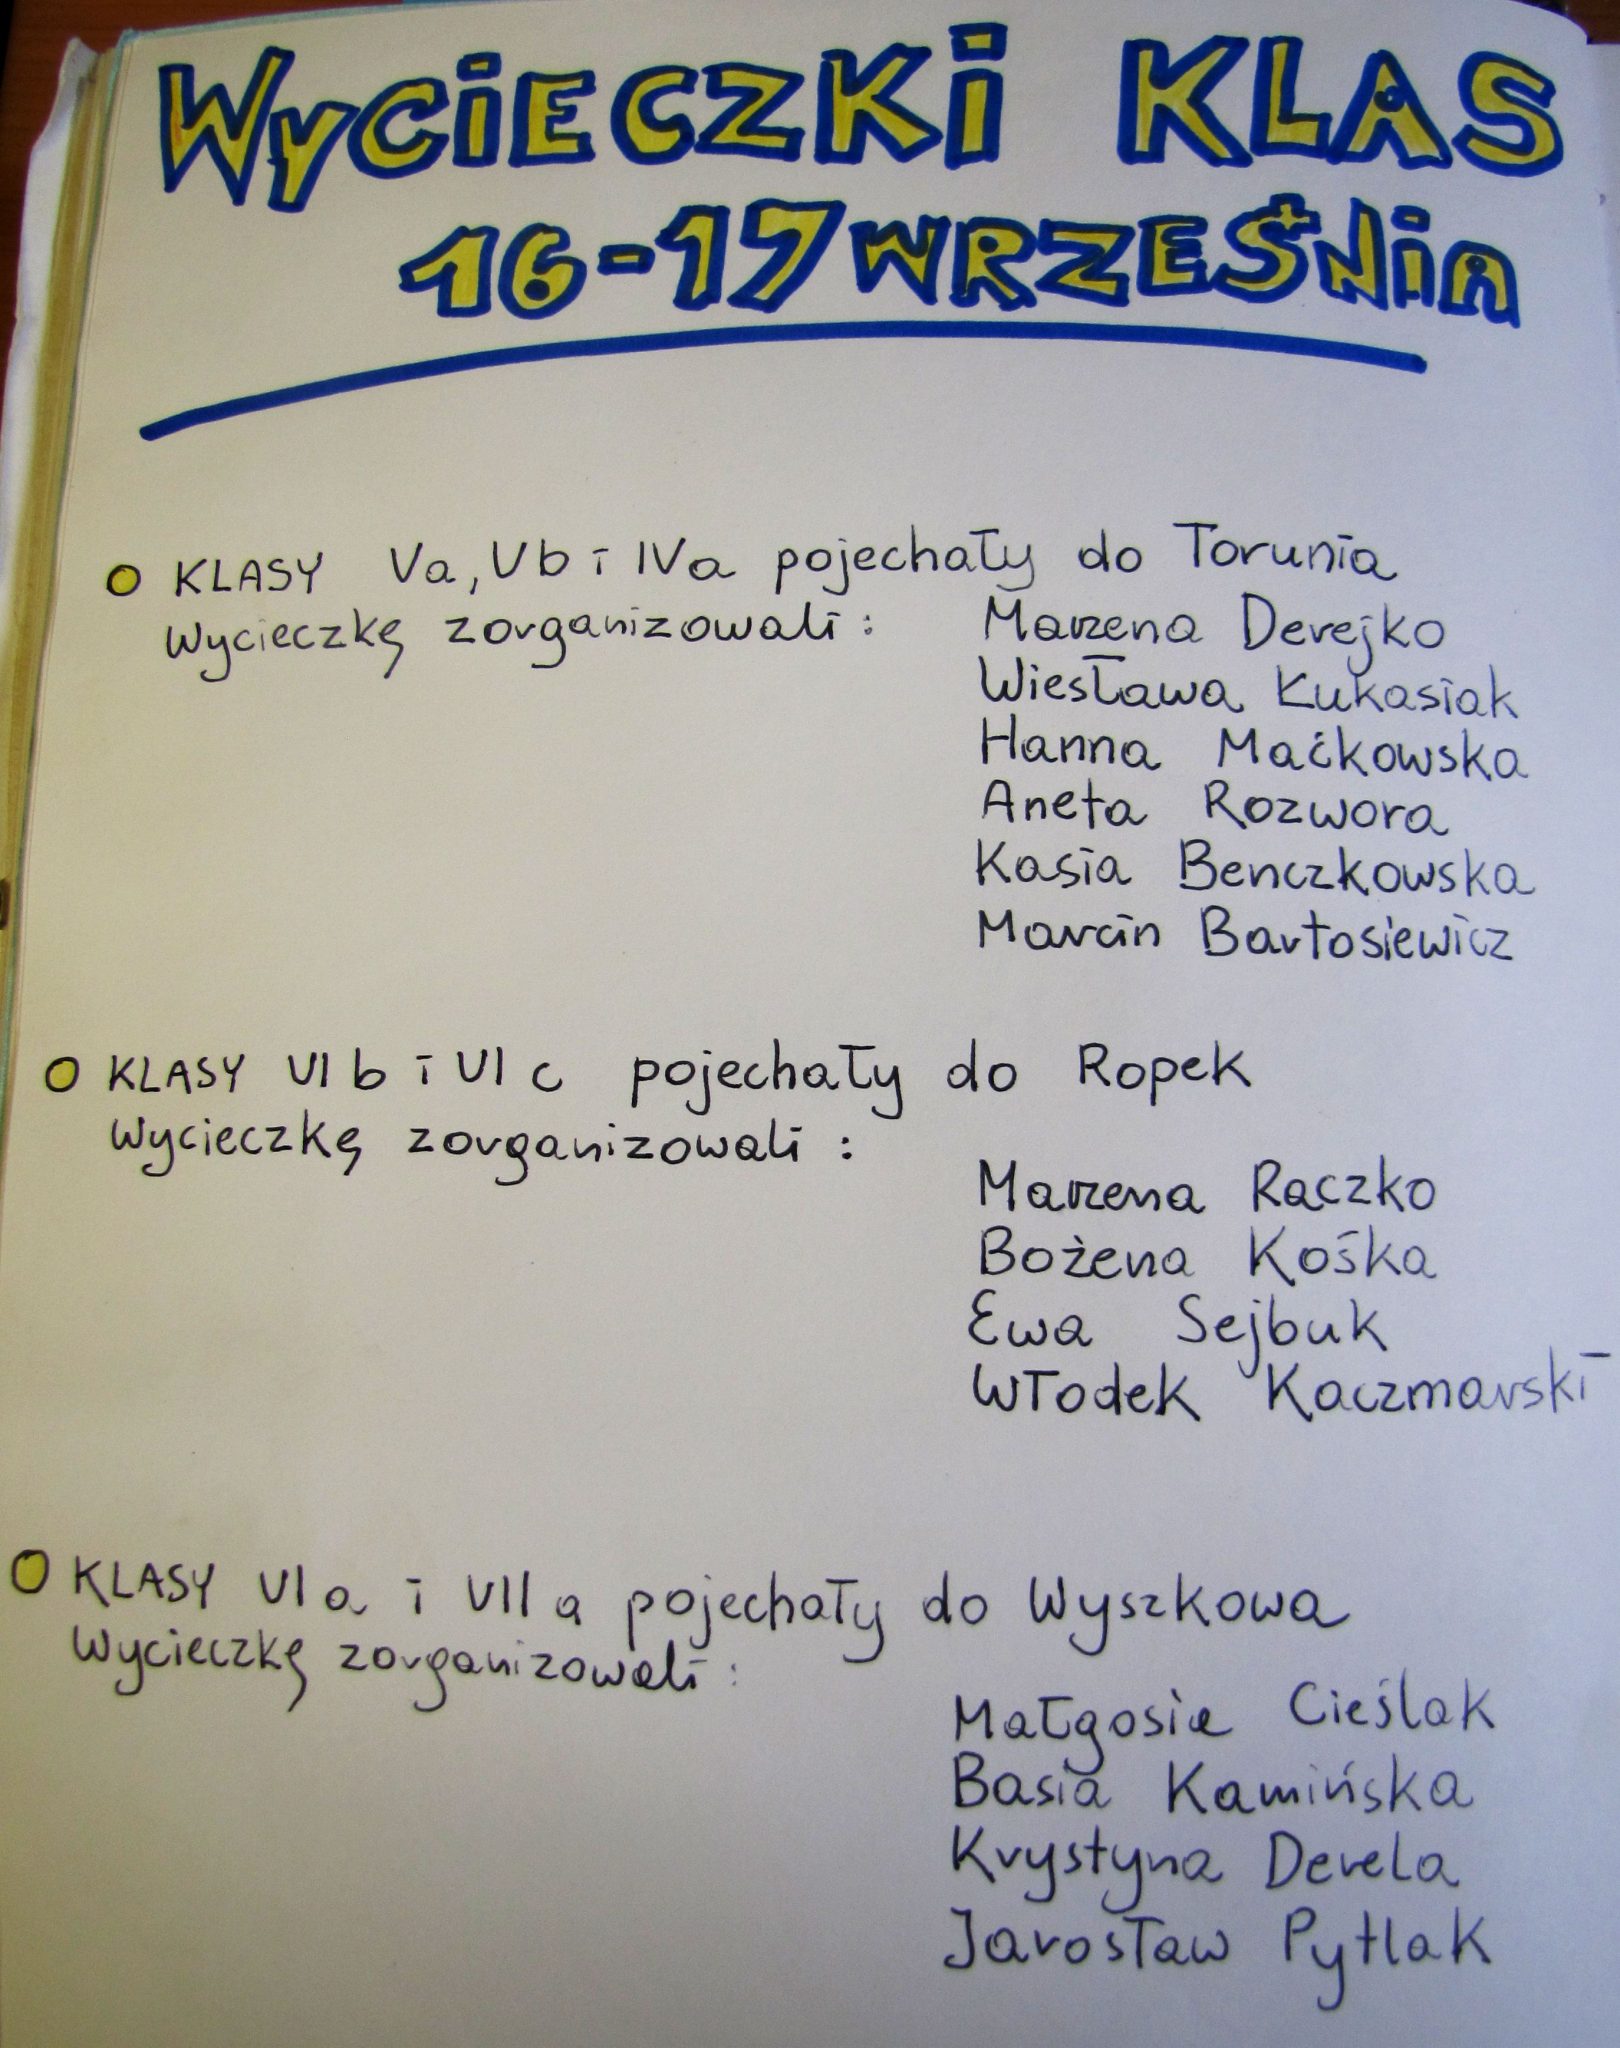 WYCIECZKI KLAS
16-17 WRZEŚNIA
KLASY Va, Vb i IVa pojechały do Torunia
Wycieczkę zorganizowali: Marzena Derejko
Wiesława Łukasiak
Hanna Maćkowska
Aneta Rozwora
Kasia Benczkowska
Marcin Bartosiewicz
KLASY VI b i VI c pojechały do Ropek
Wycieczkę zorganizowali:
Marzena Rączko
Bożena Kośka
Ewa Sejbuk
Włodek Kaczmarski
KLASY VI a i VII a pojechały do Wyszkowa
Wycieczkę zorganizowali:
Małgosia Cieślak
Basia Kamińska
Krystyna Derela
Jarosław Pytlak